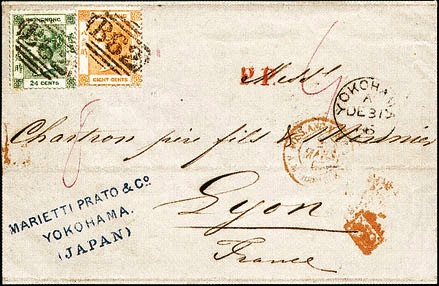 HONGKONG
24 CENTS
EIGHT CENTS
B62
P.P.
YOKOHAMA
A
DE 31
Chartron père fils & Monnier
Lyon
France
MARIETTI PRATO & Co.
YOKOHAMA.
(JAPAN)